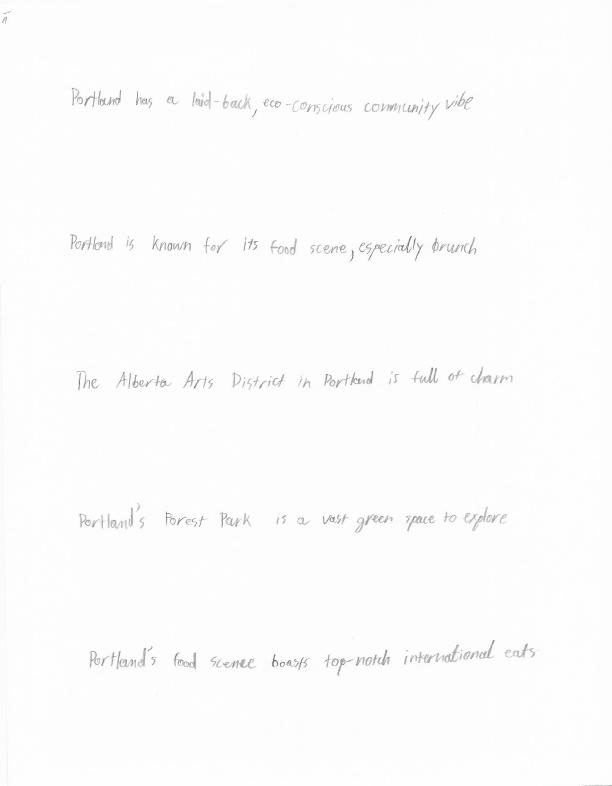 Portland has a laid-back, eco-conscious community vibe
Portland is known for its food scene, especially brunch
The Alberta Arts District in Portland is full of charm
Portland's Forest Park is a vast green space to explore
Portland's food scene boasts top-notch international eats